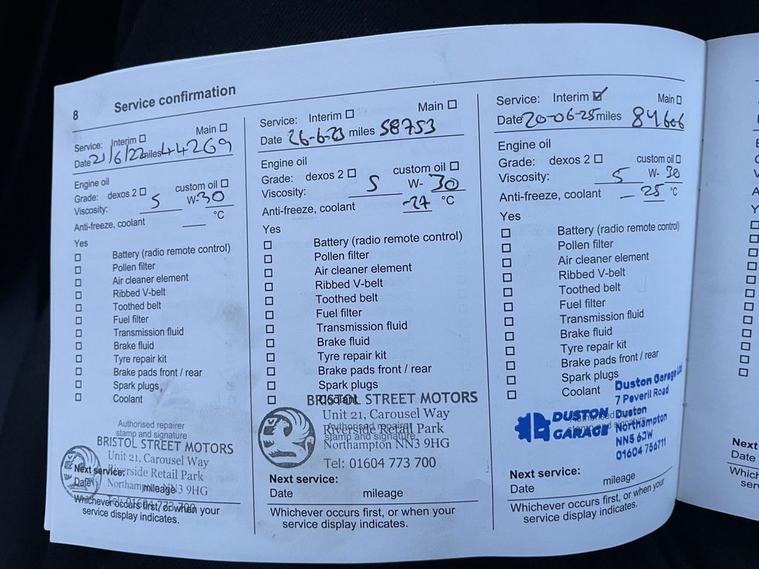 8 Service confirmation
Service: Interim ☐ Main ☐
Date 21/6/22 miles 44209
Engine oil
Grade: dexos 2 ☐ custom oil ☐
Viscosity: 5 W- 30
Anti-freeze, coolant °C
Yes
☐ Battery (radio remote control)
☐ Pollen filter
☐ Air cleaner element
☐ Ribbed V-belt
☐ Toothed belt
☐ Fuel filter
☐ Transmission fluid
☐ Brake fluid
☐ Tyre repair kit
☐ Brake pads front / rear
☐ Spark plugs
☐ Coolant
Authorised repairer
stamp and signature
BRISTOL STREET MOTORS
Unit 21, Carousel Way
Riverside Retail Park
Northampton NN3 9HG
Tel: 01604 773 700
Next service:
Date mileage
Whichever occurs first, or when your
service display indicates.
Service: Interim ☐ Main ☐
Date 26-6-23 miles 58753
Engine oil
Grade: dexos 2 ☐ custom oil ☐
Viscosity: 5 W- 30
Anti-freeze, coolant -27 °C
Yes
☐ Battery (radio remote control)
☐ Pollen filter
☐ Air cleaner element
☐ Ribbed V-belt
☐ Toothed belt
☐ Fuel filter
☐ Transmission fluid
☐ Brake fluid
☐ Tyre repair kit
☐ Brake pads front / rear
☐ Spark plugs
☐ Coolant
BRISTOL STREET MOTORS
Unit 21, Carousel Way
Authorised repairer
Riverside Retail Park
stamp and signature
Northampton NN3 9HG
Tel: 01604 773 700
Next service:
Date mileage
Whichever occurs first, or when your
service display indicates.
Service: Interim ☑ Main ☐
Date 20-06-25 miles 84606
Engine oil
Grade: dexos 2 ☐ custom oil ☐
Viscosity: 5 W- 30
Anti-freeze, coolant - 25 °C
Yes
☐ Battery (radio remote control)
☐ Pollen filter
☐ Air cleaner element
☐ Ribbed V-belt
☐ Toothed belt
☐ Fuel filter
☐ Transmission fluid
☐ Brake fluid
☐ Tyre repair kit
☐ Brake pads front / rear
☐ Spark plugs
☐ Coolant
DUSTON
GARAGE
Duston Garage Ltd
7 Peveril Road
Duston
Northampton
NN5 6JW
01604 756711
Next service:
Date mileage
Whichever occurs first, or when your
service display indicates.
Next
Date
Which
ser